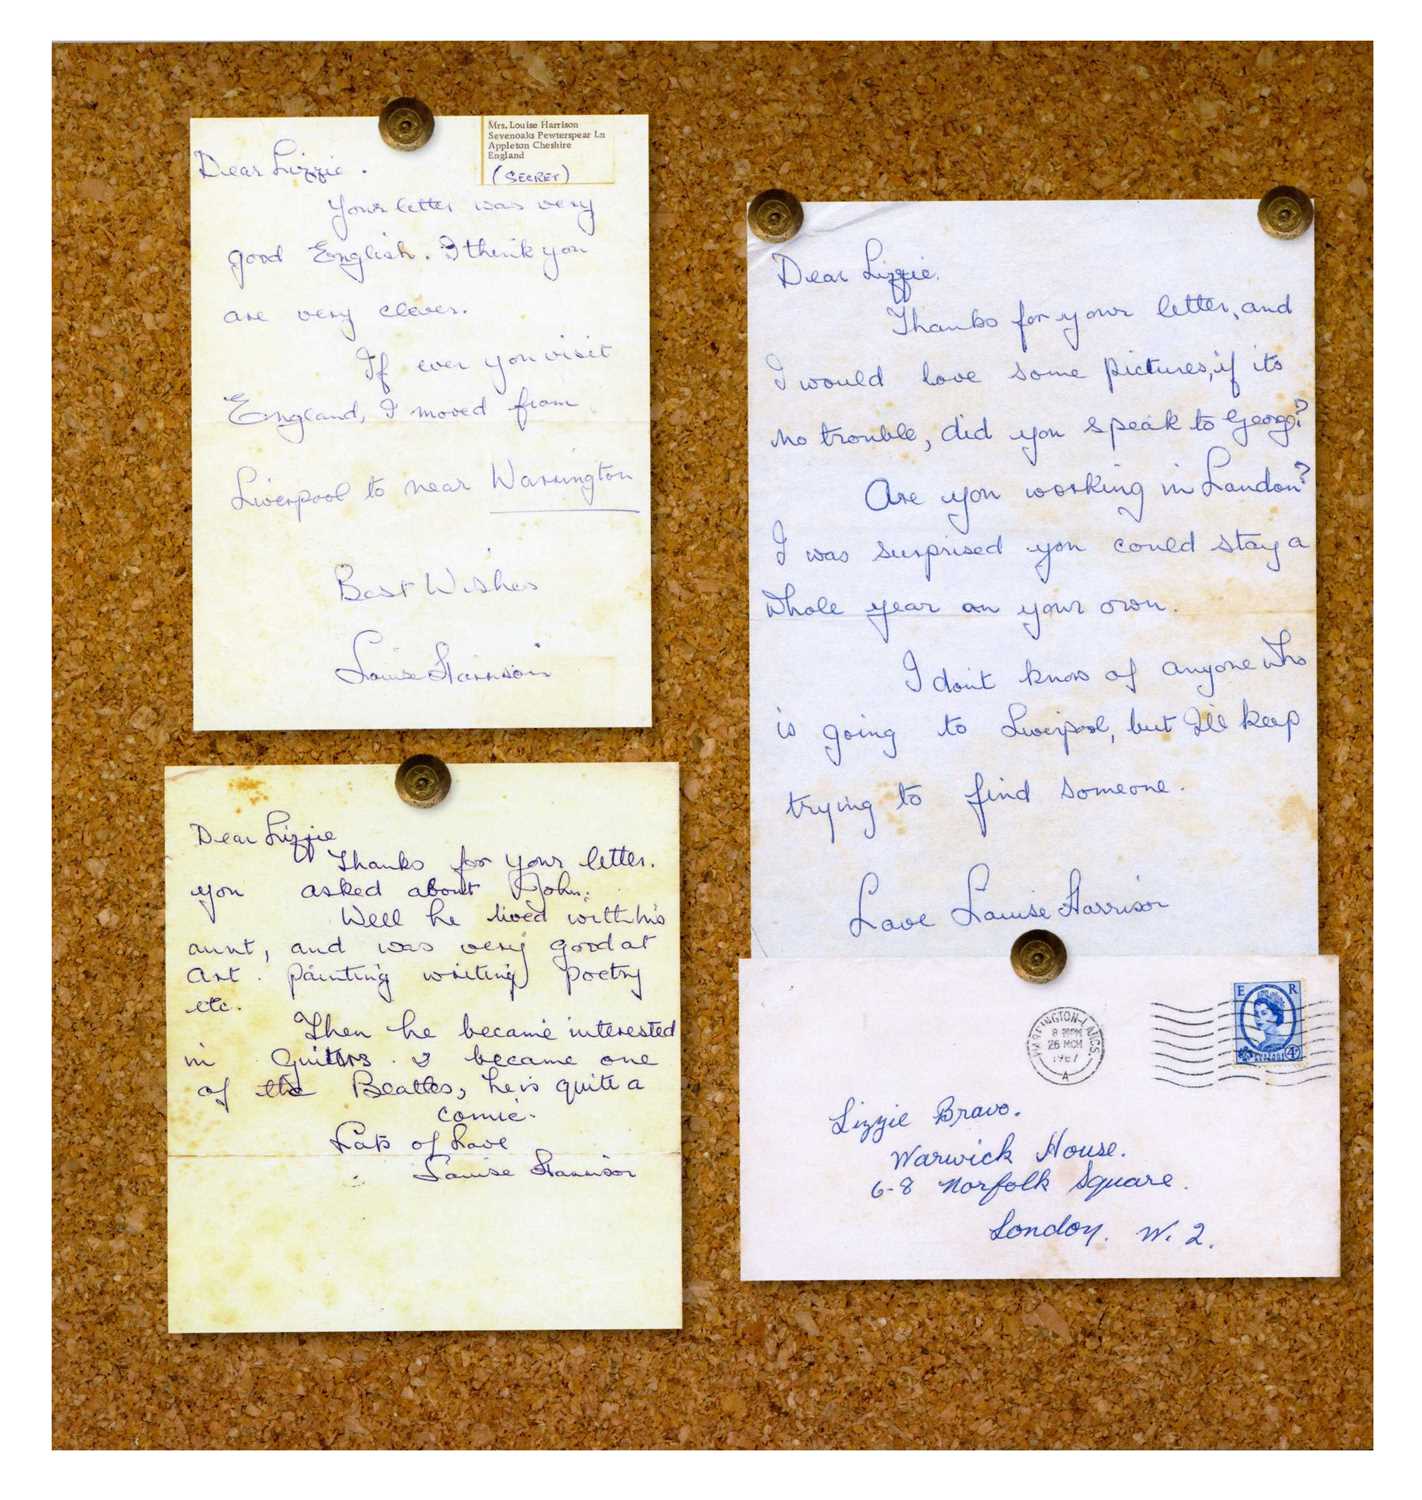 Mrs. Louise Harrison
Sevenoaks Pewterspear Ln
Appleton Cheshire
England
(SECRET)
Dear Lizzie.
Your letter was very
good English. I think you
are very clever.
If ever you visit
England, I moved from
Liverpool to near Warrington
Best Wishes
Louise Harrison
Dear Lizzie
Thanks for your letter.
you asked about John.
Well he lived with his
aunt, and was very good at
art. painting writing poetry
etc.
Then he became interested
in Guitars. & became one
of the Beatles, he is quite a
comic.
Lots of Love
Louise Harrison
Dear Lizzie.
Thanks for your letter, and
I would love some pictures, if its
no trouble, did you speak to George?
Are you working in London?
I was surprised you could stay a
whole year on your own.
I don't know of anyone who
is going to Liverpool, but I'll keep
trying to find someone.
Love Louise Harrison
WARRINGTON-LANCS.
26
1967
A
E R
4D
Lizzie Bravo.
Warwick House.
6-8 Norfolk Square.
London. W. 2.